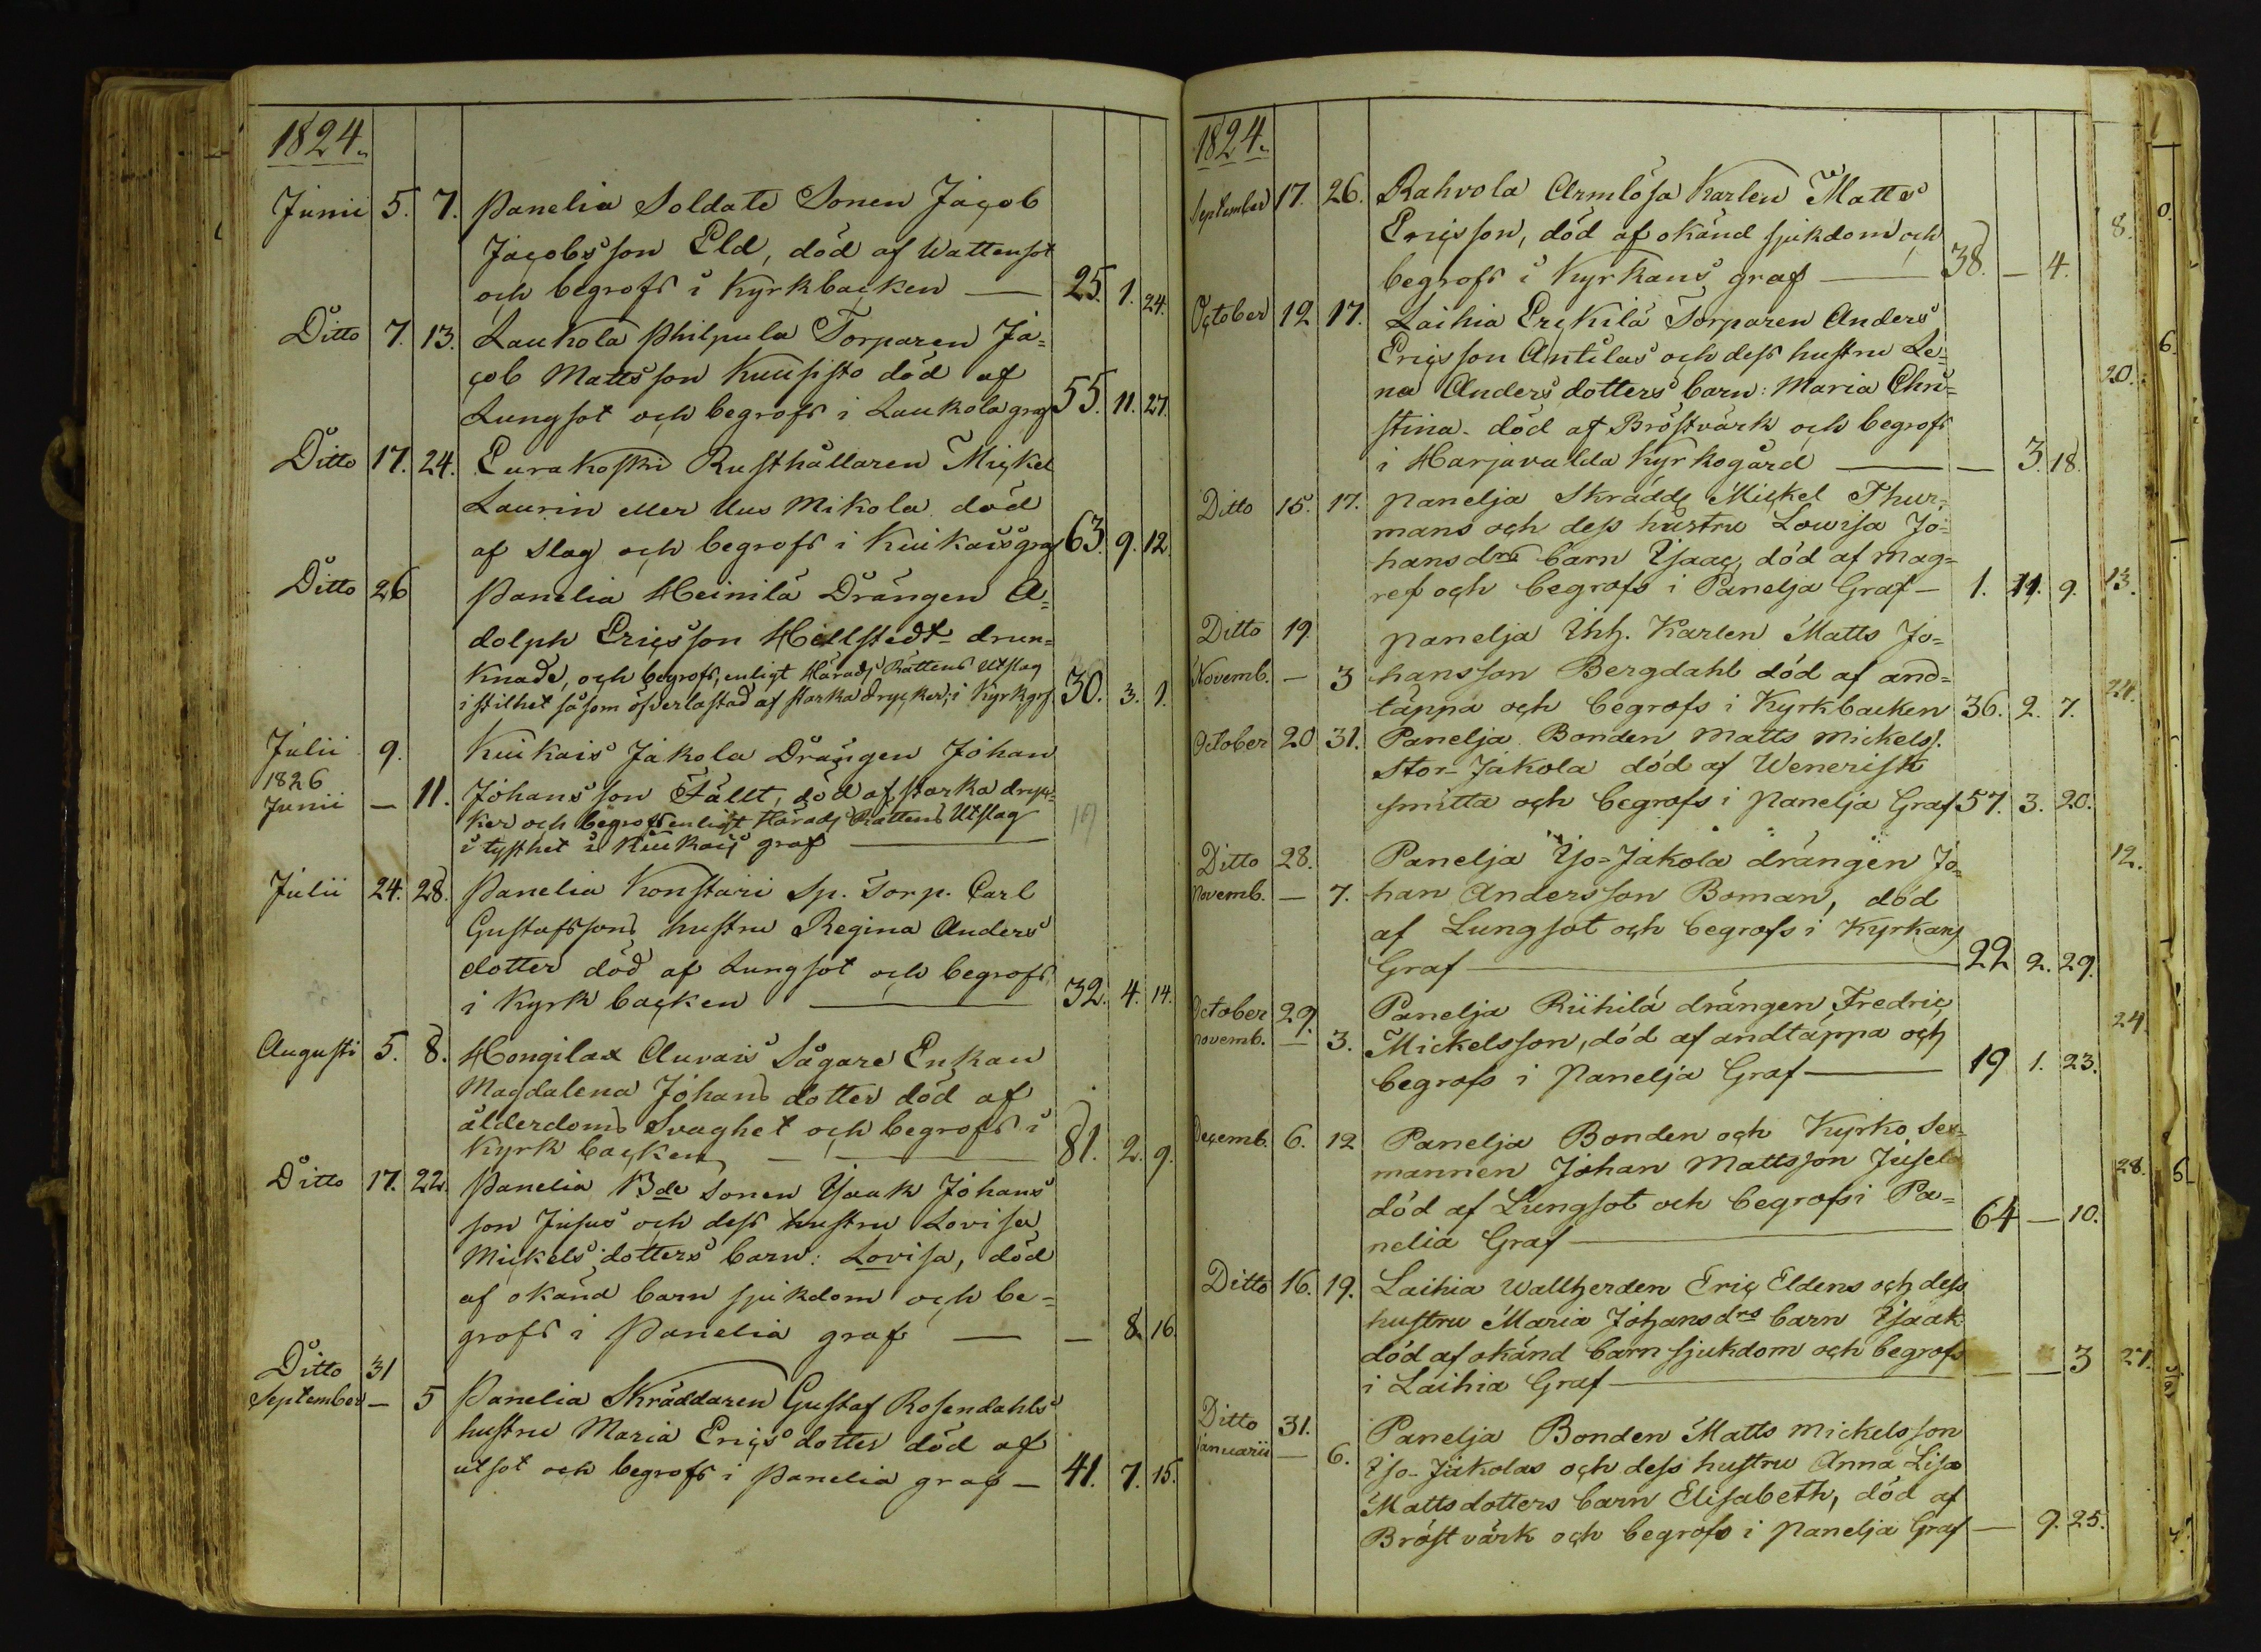 1824.
Junii 5. 7. Panelia Soldate Sonen Jacob
Jacobsson Eld, död af Wattensot
och begrofs i Kyrkbacken — 25. 1. 24.
Ditto 7. 13. Laukola Philpula Torparen Ja=
cob Mattsson Kuusisto död af
Lungsot och begrofs i Laukola graf 55. 11. 27.
Ditto 17. 24. Eurakoski Rusthållaren Mickel
Laurin eller Uus Mikola död
af slag och begrofs i Kiukais graf 63. 9. 12.
Ditto 26 Panelia Heinilä Drängen A=
dolph Ericsson Hellstedt drun=
knade, och begrofs, enligt Härads Rättens Utslag
i stilhet såsom öfverlastad af starka drycker, i Kyrkgrf. 30. 3. 1.
Julii 9. Kiukais Jakola Drängen Johan
1826
Junii — 11. Johansson Fällt, död af starka dryc=
ker och begrofs enligt Härads Rättens Utslag
i tysthet i Kiukais graf —
Julii 24. 28. Panelia Konstari Sp. Torp. Carl
Gustafssons hustru Regina Anders
dotter död af Lungsot och begrofs
i Kyrkbacken — 32. 4. 14.
Augusti 5. 8. Hongilax Auvais Sågare Enkan
Magdalena Johans dotter död af
ålderdoms Svaghet och begrofs i
Kyrkbacken — 81. 2. 9.
Ditto 17. 22. Panelia Bde Sonen Isaak Johans
son Jusus och dess hustru Lovisa
Mickels dotters barn: Lovisa, död
af okänd barn sjukdom och be=
grofs i Panelia graf — — 8. 16.
Ditto 31
September — 5 Panelia Skräddaren Gustaf Rosendahls
hustru Maria Erics dotter död af
utsot och begrofs i Panelia graf — 41. 7. 15.
1824.
September 17. 26. Rahvola Armlösa Karlen Matts
Ericsson, död af okänd sjukdom och
begrofs i Kyrkans graf — 38. — 4.
October 12 17. Laihia Erckilä Torparen Anders
Ericsson Antilas och dess hustru Le=
na Anders dotters barn: Maria Chri=
stina. död af Bröstvärk och begrofs
i Harjavalda Kyrkogård — — 3. 18.
Ditto 15. 17. Panelja Skrädd. Mickel Thur=
mans och dess hustru Lowisa Jo=
hansdrs barn Isaac, död af mag=
ref och begrofs i Panelja Graf — 1. 11. 9.
Ditto 19. Panelja Inh. Karlen Matts Jo=
Novemb. — 3 hansson Bergdahl död af and=
täppa och begrofs i Kyrkbacken 36. 2. 7.
October 20 31. Panelja Bonden Matts Mickelss.
Stor-Jakola död af Wenerisk
smitta och begrofs i Panelja Graf 57. 3. 20.
Ditto 28. Panelja Iso-Jakola drängen Jo=
Novemb. — 7. han Andersson Boman, död
af Lungsot och begrofs i Kyrkans
Graf — 22 2. 29.
October 29. Panelja Riihilä drängen Fredric
Novemb. — 3. Mickelsson, död af andtäppa och
begrofs i Panelja Graf — 19 1. 23.
Decemb. 6. 12 Panelja Bonden och Kyrko Sex=
mannen Johan Mattsson Jusela
död af Lungsot och begrofs i Pa=
nelia Graf — 64 — 10.
Ditto 16. 19. Laihia Wallherden Eric Eldens och dess
hustru Maria Johansdrs barn Isaak
död af okänd barnsjukdom och begrofs
i Laihia Graf — — — 3
Ditto 31. Panelja Bonden Matts Mickelsson
Januarii — 6. Iso-Jakolas och dess hustru Anna Lisa
Mattsdotters barn Elisabeth, död af
Bröstvärk och begrofs i Panelja Graf — 9. 25.
8.
20.
13.
24.
12.
24.
28.
27.
0.
6.
6